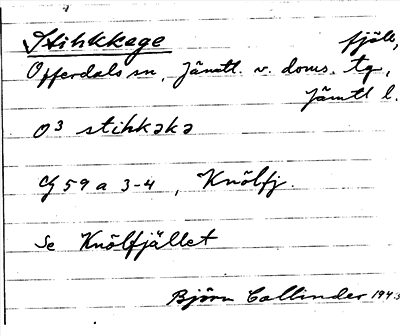 Stihkkage fjäll,
Offerdals sn, Jämtl. v. doms. tg,
Jämtl l.
O3 stihkəkə
Cg 59 a 3-4, Knölfj.
Se Knölfjället
Björn Collinder 194